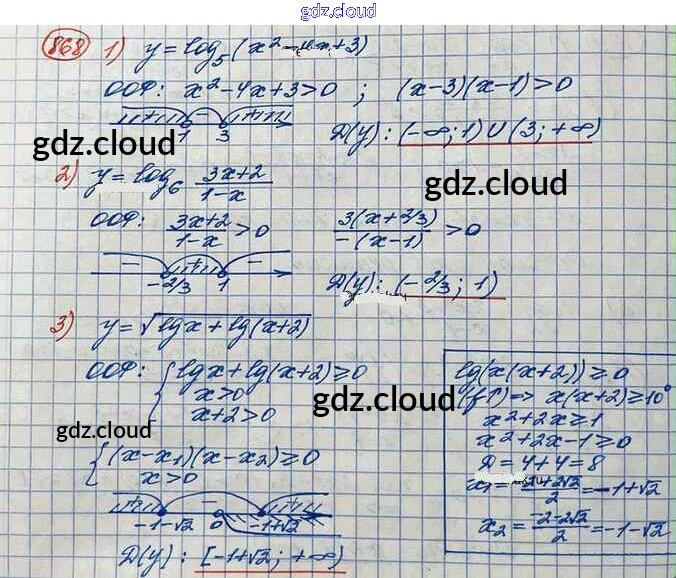 gdz.cloud
gdz.cloud
868 1) y = log₅(x² - 4x + 3)
ООФ: x² - 4x + 3 > 0 ; (x-3)(x-1) > 0
+ - +
1 3
D(y): (-∞; 1) ∪ (3; +∞)
gdz.cloud
2) y = log₆ (3x+2)/(1-x)
gdz.cloud
ООФ: (3x+2)/(1-x) > 0 3(x+2/3)/(-(x-1)) > 0
- + -
-2/3 1
D(y): (-2/3; 1)
3) y = √(lgx + lg(x+2))
ООФ: { lgx + lg(x+2) ≥ 0
x > 0
x+2 > 0
gdz.cloud
gdz.cloud
{ (x-x₁)(x-x₂) ≥ 0
x > 0
+ - +
-1-√2 0 -1+√2
D(y): [-1+√2; +∞)
lg(x(x+2)) ≥ 0
(f↑) => x(x+2) ≥ 10⁰
x² + 2x ≥ 1
x² + 2x - 1 ≥ 0
D = 4+4 = 8
x₁ = (-2+2√2)/2 = -1+√2
x₂ = (-2-2√2)/2 = -1-√2